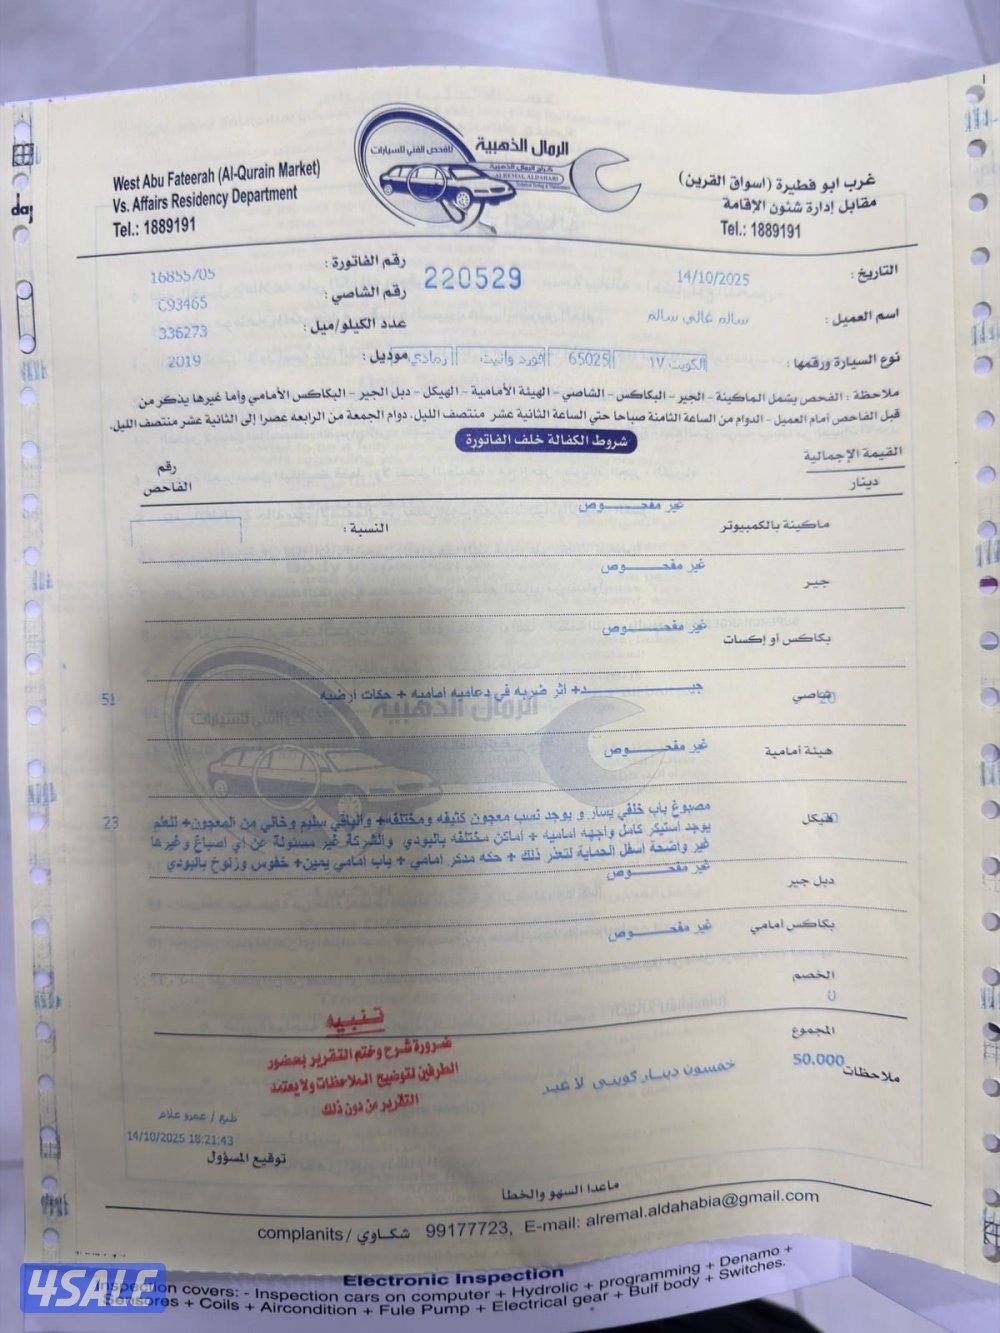 الرمال الذهبية
للفحص الفني للسيارات
كراج الرمال الذهبية
ALREMAL ALDAHABI
West Abu Fateerah (Al-Qurain Market)
Vs. Affairs Residency Department
Tel.: 1889191
غرب ابو فطيرة (اسواق القرين)
مقابل إدارة شئون الإقامة
Tel.: 1889191
التاريخ : 14/10/2025
220529
رقم الفاتورة : 16855/05
اسم العميل : سالم غالي سالم
رقم الشاصي : C93465
عدد الكيلو/ميل : 336273
نوع السيارة ورقمها : الكويت ١٧ 65025 فورد وانيت رمادي
موديل : 2019
ملاحظة : الفحص يشمل الماكينة - الجير - البكاكس - الشاصي - الهيئة الأمامية - الهيكل - دبل الجير - البكاكس الأمامي وأما غيرها يذكر من
قبل الفاحص أمام العميل - الدوام من الساعة الثامنة صباحا حتي الساعة الثانية عشر منتصف الليل. دوام الجمعة من الرابعه عصرا إلى الثانية عشر منتصف الليل.
شروط الكفالة خلف الفاتورة
القيمة الإجمالية
دينار
رقم
الفاحص
ماكينة بالكمبيوتر
غير مفحـــــوص
النسبة :
جير
غير مفحـــــوص
بكاكس أو إكسات
غير مفحـــــوص
شاصي
20
جيـــــــــد+ أثر ضربه في دعاميه اماميه + حكات أرضيه
51
هيئة أمامية
غير مفحـــــوص
هيكل
مصبوغ باب خلفي يسار و يوجد نسب معجون كثيفه ومختلفه+ والباقي سليم وخالي من المعجون+ للعلم
يوجد استيكر كامل واجهه اماميه + أماكن مختلفه بالبودي والشركة غير مسئولة عن اي اصباغ وغيرها
غير واضحة أسفل الحماية لتعذر ذلك + حكه مدكر امامي + باب امامي يمين+ خفوس وزلوخ بالبودي
23
دبل جير
غير مفحـــــوص
بكاكس أمامي
غير مفحـــــوص
الخصم
0
المجموع
50.000
ملاحظات
خمسون دينار كويتي لا غير
تنبيه
ضرورة شرح وختم التقرير بحضور
الطرفين لتوضيح الملاحظات ولا يعتمد
التقرير من دون ذلك
طبع / عمرو علام
14/10/2025 18:21:43
توقيع المسؤول
ماعدا السهو والخطأ
complanits / شكاوي 99177723, E-mail: alremal.aldahabia@gmail.com
Electronic Inspection
Inspection covers: - Inspection cars on computer + Hydrolic + programming + Denamo +
Sensores + Coils + Aircondition + Fule Pump + Electrical gear + Bulf body + Switches.
4SALE